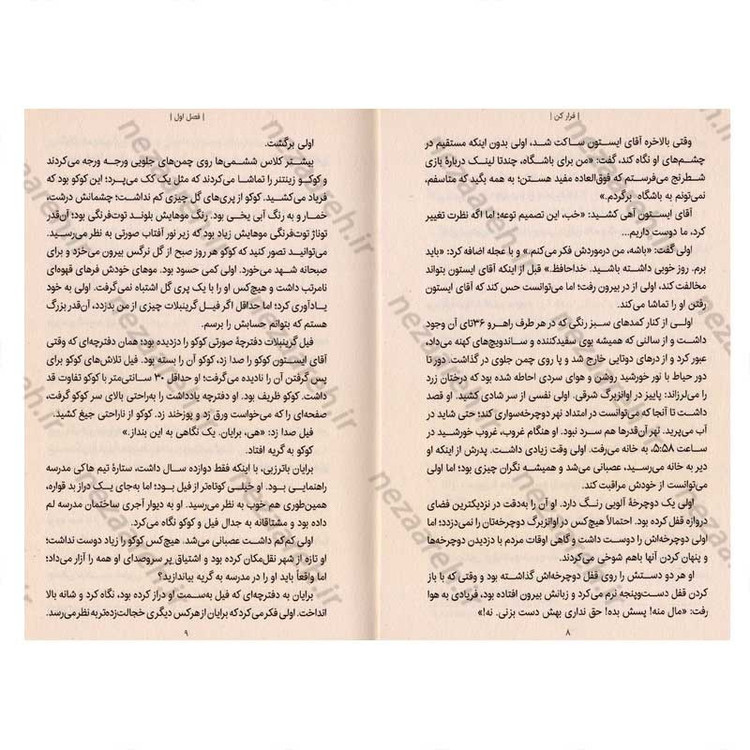 | فرار کن |
وقتی بالاخره آقای ایستون ساکت شد، اولی بدون اینکه مستقیم در
چشم‌های او نگاه کند، گفت: «من برای باشگاه، چندتا لینک دربارهٔ بازی
شطرنج می‌فرستم که فوق‌العاده مفید هستن؛ به همه بگید که متاسفم،
نمی‌تونم به باشگاه برگردم.»
آقای ایستون آهی کشید: «خب، این تصمیم توعه؛ اما اگه نظرت تغییر
کرد، ما دوست داریم...
اولی گفت: «باشه، من درموردش فکر می‌کنم.» و با عجله اضافه کرد: «باید
برم. روز خوبی داشته باشید. خداحافظ.» قبل از اینکه آقای ایستون بتواند
مخالفت کند، اولی از در بیرون رفت؛ اما می‌توانست حس کند که آقای ایستون
رفتن او را تماشا می‌کند.
اولـی از کنار کمدهای سبز رنگی که در هر طرف راهـرو ۳۶تای آن وجود
داشـت و از سالنی که همیشه بوی سفیدکننده و ساندویچ‌های کهنه می‌داد،
عبور کرد و از درهای دوتایی خارج شد و پا روی چمن جلوی در گذاشت. دور تا
دور حیاط با نور خورشید روشن و هوای سردی احاطه شده بود که درختان زرد
را می‌لرزاند: پاییز در اوانزبرگ شرقی. اولی نفسی از سر شادی کشید. او قصد
داشـت تا آنجا که می‌توانست در امتداد نهر دوچرخه‌سواری کند؛ حتی شاید در
آب می‌پرید. نهر آن‌قدرها هم سـرد نبود. او هنگام غروب، غروب خورشـید در
ساعت ۵:۵۸، به خانه می‌رفت. اولی وقت زیادی داشـت. پدرش از اینکه او
دیر به خانه می‌رسید، عصبانی می‌شد و همیشه نگران چیزی بود؛ اما اولی
می‌توانست از خودش مراقبت کند.
اولی یک دوچرخهٔ آلویی رنـگ دارد. او آن را به‌دقت در نزدیکترین فضای
دروازه قفل کرده بود. احتمالاً هیچ‌کس در اوانزبرگ دوچرخه‌تان را نمی‌دزدد؛ اما
اولی دوچرخه‌اش را دوست داشت و گاهی اوقات مردم با دزدیدن دوچرخه‌ها
و پنهان کردن آنها باهم شوخی می‌کردند.
او هر دو دستش را روی قفل دوچرخه‌اش گذاشته بود و وقتی که با باز
کردن قفل دست‌وپنجه نرم می‌کرد و زبانش بیرون افتاده بود، فریادی به هوا
رفت: «مال منه! پسش بده! حق نداری بهش دست بزنی. نه!»
۸
| فصل اول |
اولی برگشت.
بیشـتر کلاس ششـمی‌ها روی چمن‌های جلویی ورجـه ورجه می‌کردند
و کوکـو زینتنر را تماشـا می‌کردند که مثل یک کک می‌پرد؛ این کوکو بود که
فریاد می‌کشید. کوکو از پری‌های گل چیزی کم نداشت؛ چشمانش درشت،
خمـار و به رنگ آبی یخی بود. رنگ موهایش بلونـد توت‌فرنگی بود؛ آن‌قدر
توناژ توت‌فرنگی موهایش زیاد بود که زیر نور آفتاب صورتی به نظر می‌رسید.
می‌توانیـد تصور کنید که کوکو هر روز صبح از گل نرگس بیرون می‌خزد و برای
صبحانه شهد می‌خورد. اولی کمی حسود بود. موهای خودش فرهای قهوه‌ای
نامرتب داشت و هیچ‌کس او را با یک پری گل اشتباه نمی‌گرفت. اولی به خود
یـادآوری کرد؛ اما حداقل اگر فیـل گرینبلات چیزی از من بدزدد، آن‌قدر بزرگ
هستم که بتوانم حسابش را برسم.
فیل گرینبلات دفترچهٔ صورتی کوکو را دزدیده بود؛ همان دفترچه‌ای که وقتی
آقای ایسـتون کوکو را صدا زد، کوکو آن را بسته بود. فیل تلاش‌های کوکو برای
پس گرفتن آن را نادیده می‌گرفت؛ او حداقل ۳۰ سانتی‌متر با کوکو تفاوت قد
داشت. کوکو ظریف بود. او دفترچه یادداشت را به‌راحتی بالای سر کوکو گرفت،
صفحه‌ای را که می‌خواست ورق زد و پوزخند زد. کوکو از ناراحتی جیغ کشید.
فیل صدا زد: «هی، برایان. یک نگاهی به این بنداز.»
کوکو به گریه افتاد.
برایان باترزبی، با اینکه فقط دوازده سـال داشـت، ستارهٔ تیم هاکی مدرسه
راهنمایـی بـود. او خیلـی کوتاه‌تر از فیل بود؛ اما به‌جای یک دراز بد قواره،
همین‌طوری هم خوب به نظر می‌رسید. او به دیوار آجری ساختمان مدرسه لم
داده بود و مشتاقانه به جدال فیل و کوکو نگاه می‌کرد.
اولی کم‌کم داشت عصبانی می‌شد. هیچ‌کس کوکو را زیاد دوست نداشت؛
او تازه از شهر نقل‌مکان کرده بود و اشتیاق پر سروصدای او همه را آزار می‌داد؛
اما واقعاً باید او را در مدرسه به گریه بیاندازید؟
برایـان به دفترچه‌ای که فیل به‌سـمت او دراز کرده بود، نگاه کرد و شـانه بالا
انداخت. اولی فکر می‌کرد که برایان از هرکس دیگری خجالت‌زده‌تر به نظر می‌رسد.
۹
nezaafeh.ir